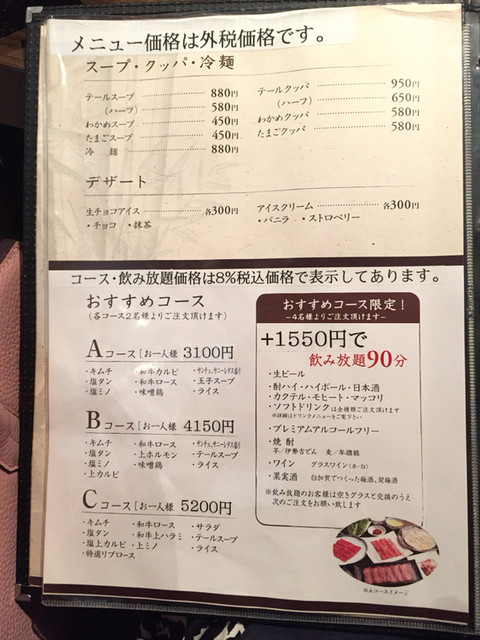 メニュー価格は外税価格です。
スープ・クッパ・冷麺
テールスープ 880円
(ハーフ) 580円
わかめスープ 450円
たまごスープ 450円
冷麺 880円
テールクッパ 950円
(ハーフ) 650円
わかめクッパ 580円
たまごクッパ 580円
デザート
生チョコアイス 各300円
・チョコ ・抹茶
アイスクリーム 各300円
・バニラ ・ストロベリー
コース・飲み放題価格は8%税込価格で表示してあります。
おすすめコース
(各コース2名様よりご注文頂けます)
Aコース [お一人様 3100円
・キムチ ・和牛カルビ ・サンチュ、サニーレタス盛り
・塩タン ・和牛ロース ・玉子スープ
・塩ミノ ・味噌鶏 ・ライス
Bコース [お一人様 4150円
・キムチ ・和牛ロース ・サンチュ、サニーレタス盛り
・塩タン ・上ホルモン ・テールスープ
・塩ミノ ・味噌鶏 ・ライス
・上カルビ
Cコース [お一人様 5200円
・キムチ ・和牛ロース ・サラダ
・塩タン ・和牛上ハラミ ・テールスープ
・塩上カルビ ・上ミノ ・ライス
・特選リブロース
おすすめコース限定！
−4名様よりご注文頂けます−
+1550円で
飲み放題90分
・生ビール
・酎ハイ・ハイボール・日本酒
・カクテル・モヒート・マッコリ
・ソフトドリンクは全種類ご注文頂けます
※詳細はドリンクメニューをご覧下さい
・プレミアムアルコールフリー
・焼酎
芋/伊勢吉どん 麦/年讃鶴
・ワイン グラスワイン(赤・白)
・果実酒 白加賀でつくった梅酒、髪梅酒
※飲み放題のお客様は空きグラスと交換のうえ
次のご注文をお願い致します
※Aコースイメージ